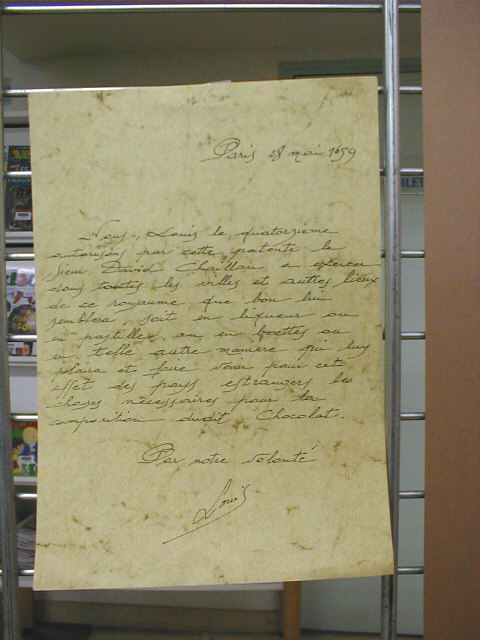 Paris 28 mai 1659
Nous, Louis le quatorzieme
autorisons par cette patente le
sieur David Chaillou, a exercer
dans toutes les villes et autres lieux
de ce royaume que bon lui
semblera soit en liqueur ou
en pastilles, ou en boettes ou
en telle autre maniere qui luy
plaira et faire venir pour cet
effet des pays estrangers les
choses necessaires pour la
composition dudit Chocolat.
Par notre volonté
Louis